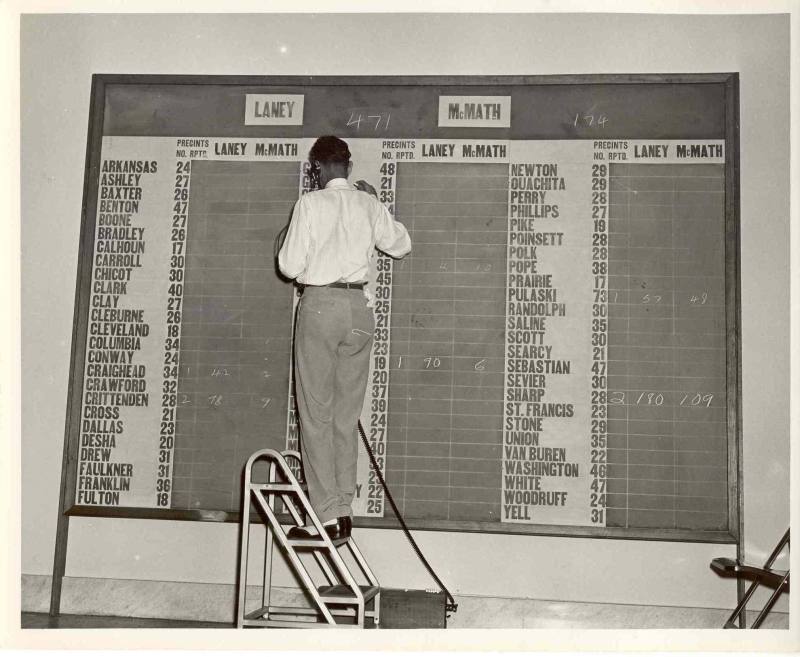 LANEY 471 McMATH 174
PRECINTS
NO. RPTD. LANEY McMATH
ARKANSAS 24
ASHLEY 27
BAXTER 26
BENTON 47
BOONE 27
BRADLEY 26
CALHOUN 17
CARROLL 30
CHICOT 30
CLARK 40
CLAY 27
CLEBURNE 26
CLEVELAND 18
COLUMBIA 34
CONWAY 24
CRAIGHEAD 34 1 42 2
CRAWFORD 32
CRITTENDEN 28 2 78 9
CROSS 21
DALLAS 23
DESHA 20
DREW 31
FAULKNER 31
FRANKLIN 36
FULTON 18
PRECINTS
NO. RPTD. LANEY McMATH
48
21
33
35
45
30
25
21
33
23
19 1 90 6
20
37
39
24
27
30
22
25
PRECINTS
NO. RPTD. LANEY McMATH
NEWTON 29
OUACHITA 29
PERRY 28
PHILLIPS 27
PIKE 19
POINSETT 28
POLK 28
POPE 38
PRAIRIE 17
PULASKI 73 1 57 49
RANDOLPH 30
SALINE 35
SCOTT 30
SEARCY 21
SEBASTIAN 47
SEVIER 30
SHARP 28 2 180 109
ST. FRANCIS 23
STONE 29
UNION 35
VAN BUREN 22
WASHINGTON 46
WHITE 47
WOODRUFF 24
YELL 31